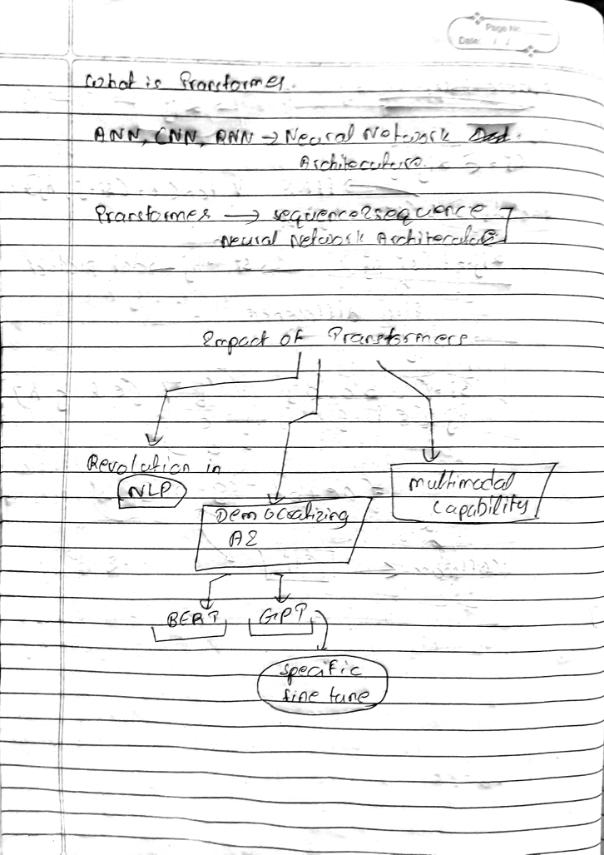 Page No.
Date: / /
What is Transformer.
ANN, CNN, RNN → Neural Network
Architecture.
Transformer → sequence2sequence
Neural Network Architecture
Impact of Transformers
Revolution in
NLP
Democratizing
AI
multimodal
capability
BERT GPT
specific
fine tune